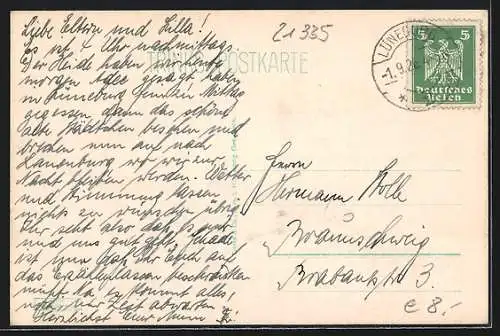 Liebe Eltern und Lilla!
Es ist 4 Uhr nachmittags.
Der Heide haben wir heute
morgen ades gesagt, haben
in Lüneburg gemütl. Mittag
gegessen, dann das schöne
alte Städtchen besehen und
brechen nun auf nach
Lauenburg wo wir zur
Nacht bleiben werden. Wetter
und Stimmung lassen
nichts zu wünschen übrig.
Ihr seht also daß es mir
und uns gut geht. Schade
ist nur daß Ihr Euch auf
das Erzählenlassen beschränken
müßt. Na, es kommt alles,
nur der Zeit abwarten.
Herzlichst Euer
21335
POSTKARTE
LÜNEBURG
-1.9.26
5 5
Deutsches
Reich
Herrn
Hermann
Braunschweig
Brabantstr. 3.
€ 8,-